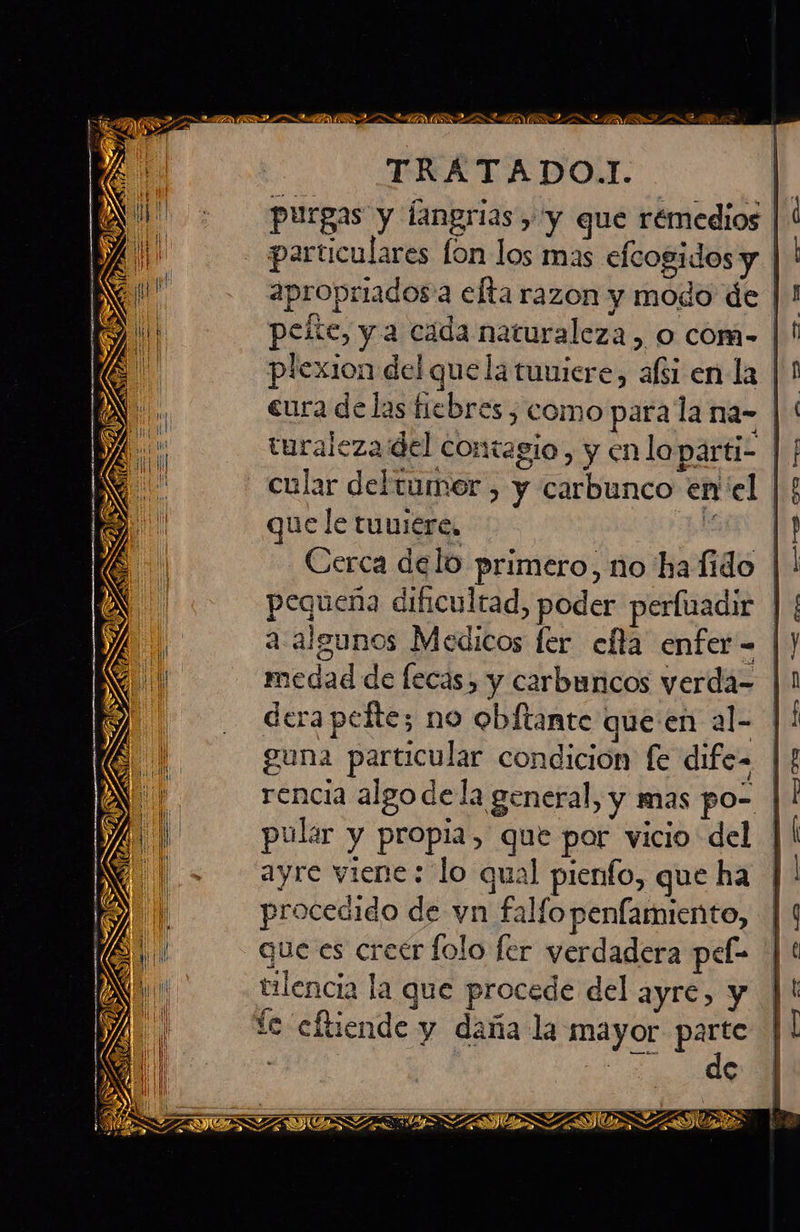 TRATADO.I.
purgas y ſangrias, y que rémedios
particulares ſon los mas eſcogidos y
apropriados a eſta razon y modo de
peſte, y a cada naturaleza, o com-
plexion del que la tuuiere, aſsi en la
cura de las fiebres, como para la na-
turaleza del contagio, y en lo parti-
cular del tumor, y carbunco en el
que le tuuiere.
Cerca de lo primero, no ha ſido
pequeña dificultad, poder perſuadir
a algunos Medicos ſer eſta enfer-
medad de ſecas, y carbuncos verda-
dera peſte; no obſtante que en al-
guna particular condicion ſe dife-
rencia algo de la general, y mas po-
pular y propia, que por vicio del
ayre viene: lo qual pienſo, que ha
procedido de vn falſo penſamiento,
que es creer ſolo ſer verdadera peſ-
tilencia la que procede del ayre, y
ſe eſtiende y daña la mayor parte
de